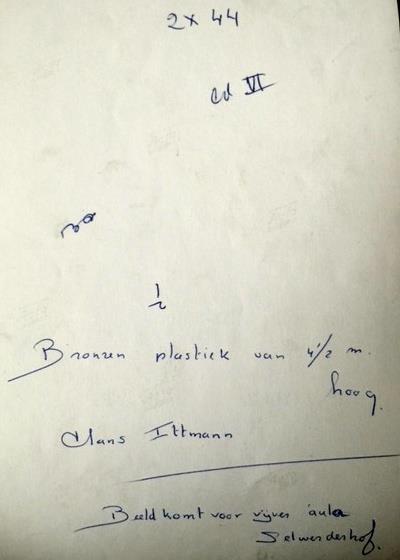 2 x 44
ed VI
1/2
Bronzen plastiek van 4 1/2 m.
hoog.
Clans Ittmann
Beeld komt voor vijver aula
Selwerderhof.